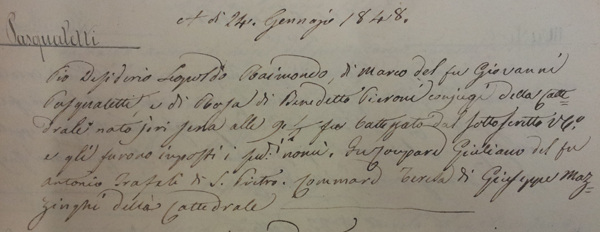 A dì 24. Gennajo 1848.
Pasqualetti
Pio Desiderio Leopoldo Raimondo, di Marco del fu Giovanni
Pasqualetti e di Rosa di Benedetto Pieroni conjugi della Catte=
drale nato jeri sera alle fu battezzato dal sottoscritto
e gli furono imposti i sud.i nomi. Fu Compare Giuliano del fu
Antonio di S. Pietro. Commare Teresa di Giuseppe Maz=
zinghi della Cattedrale